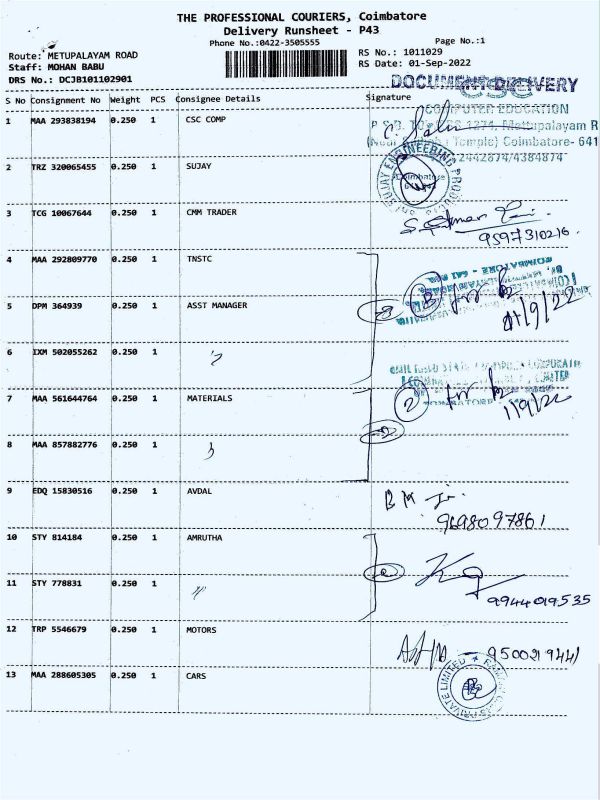 THE PROFESSIONAL COURIERS, Coimbatore
Delivery Runsheet - P43
Phone No.:0422-3505555
Page No.:1
Route: METUPALAYAM ROAD
RS No.: 1011029
Staff: MOHAN BABU
RS Date: 01-Sep-2022
DRS No.: DCJB101102901
DOCUMENT DELIVERY
S No Consignment No Weight PCS Consignee Details Signature
CSC
COMPUTER EDUCATION
1 MAA 293838194 0.250 1 CSC COMP
1274, Mettupalayam R
Temple) Coimbatore- 641
2442874/4384874
2 TRZ 320065455 0.250 1 SUJAY
SUJAY ENGINEERING PRODUCTS
Coimbatore
3 TCG 10067644 0.250 1 CMM TRADER
9597310216.
4 MAA 292809770 0.250 1 TNSTC
COIMBATORE - 641
5 DPM 364939 0.250 1 ASST MANAGER
3
1/9/22
6 IXM 502055262 0.250 1 "
7 MAA 561644764 0.250 1 MATERIALS
LIMITED
2
1/9/22
8 MAA 857882776 0.250 1 "
2
9 EDQ 15830516 0.250 1 AVDAL
9698097861
10 STY 814184 0.250 1 AMRUTHA
11 STY 778831 0.250 1 "
9944019535
12 TRP 5546679 0.250 1 MOTORS
9500219441
13 MAA 288605305 0.250 1 CARS
PRIVATE LIMITED